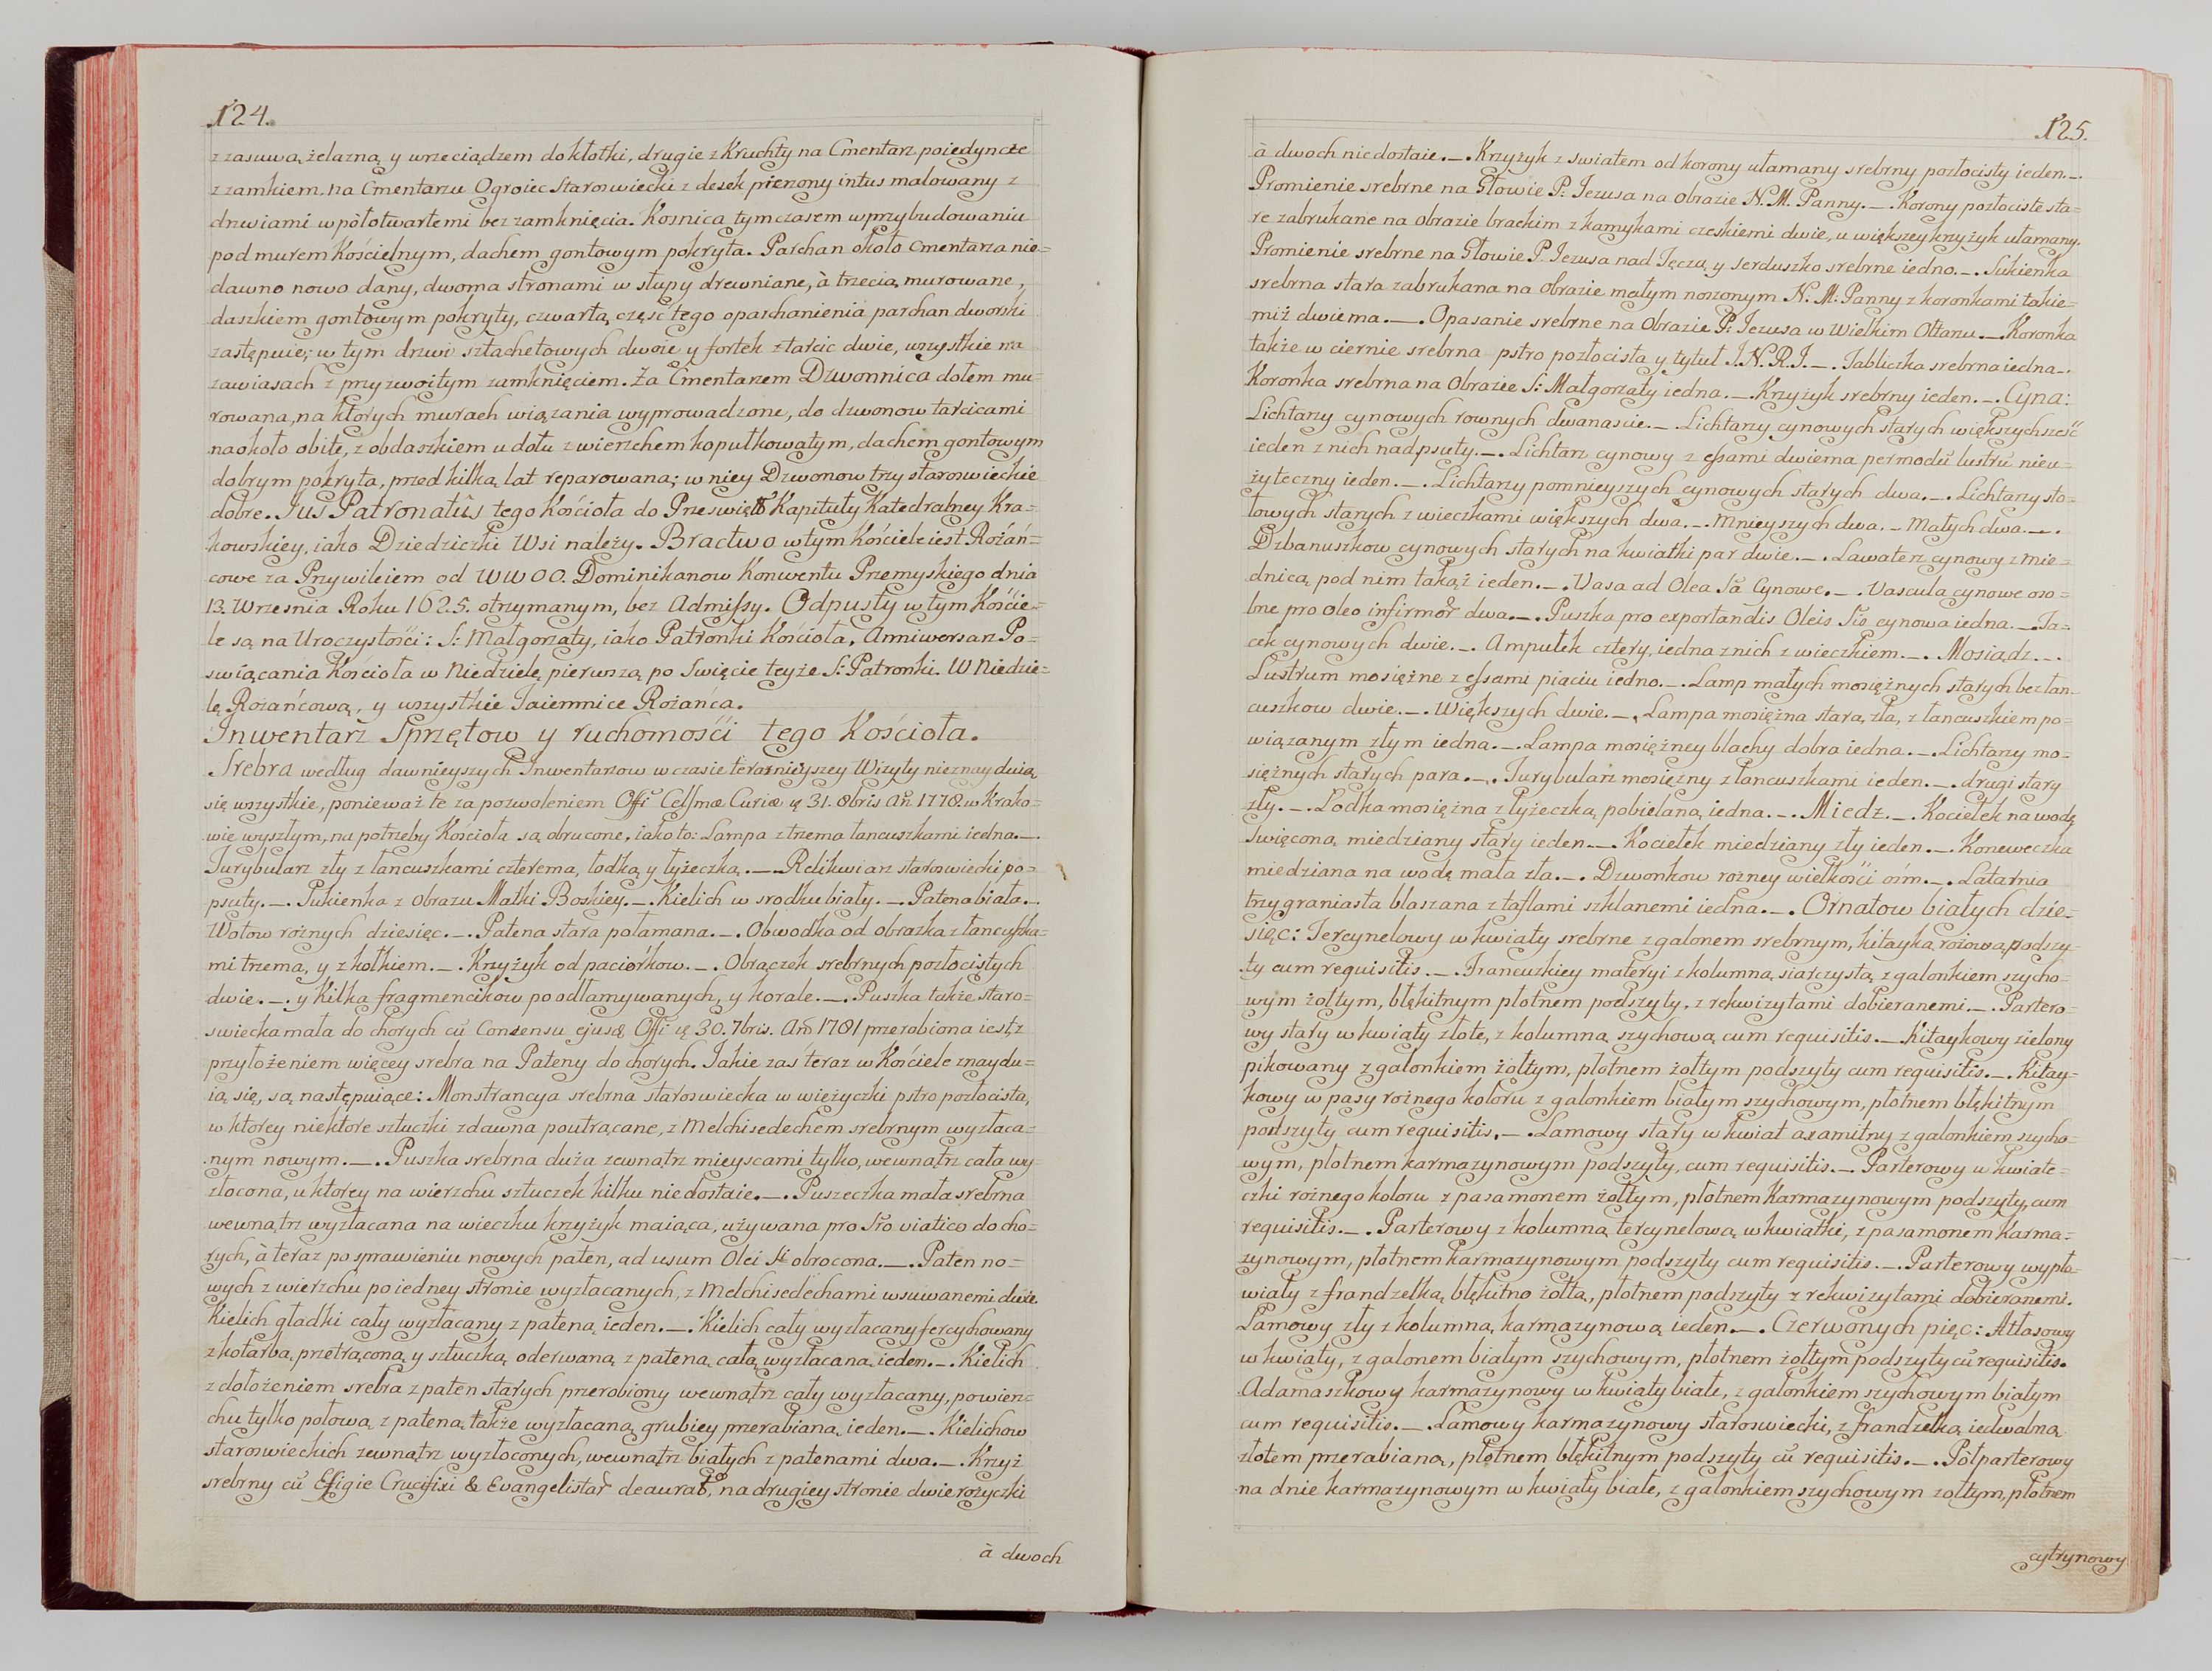 124.
z zasuwą żelazną y wrzeciądzem do kłotki, drugie z Kruchty na Cmentarz poiedyncze
z zamkiem. na Cmentarzu Ogroiec Staroswiecki z desek pierzony intus malowany z
drzwiami wpółotwartemi bez zamknięcia. Kosnica tymczasem wprzybudowaniu
pod murem Kościelnym, dachem gontowym pokryta. Parchan około Cmentarza nie=
dawno nowo dany, dwoma stronami w słupy drewniane, à trzecią murowane,
daszkiem gontowym pokryty, czwartą częsc tego oparchanienia parchan dworski
zastępuie; w tym drzwi sztachetowych dwoie y fortek z tarcic dwie, wszystkie na
zawiasach z przyzwoitym zamknięciem. Za Cmentarzem Dzwonnica dołem mu=
rowana, na ktorych murach wiązania wyprowadzone, do dzwonow tarcicami
naokoło obite, z obdaszkiem u dołu z wierzchem kopułkowatym, dachem gontowym
dobrym pokryta, przed kilką lat reparowana; w niey Dzwonow trzy staroswieckie
dobre. Jus Patronatûs tego Kościoła do Przeswięt Kapituły Katedralney Kra=
kowskiey, iako Dziedziczki Wsi należy. Bractwo w tym Kościele iest Rożań=
cowe za Przywileiem od WWOO. Dominikanow Konwentu Przemyskiego dnia
13. Wrzesnia Roku 1625. otrzymanym, bez Admissy. Odpusty w tym Koście=
le są na Uroczystości: S: Małgorzaty, iako Patronki Kościoła, Anniwersarz Po=
swiącania Kościoła w Niedzielę pierwszą po Swięcie teyże S: Patronki. W Niedzie=
lę Rożańcową, y wszystkie Taiemnice Rożańca.
Inwentarz Sprzętow y ruchomości tego Kościoła.
Srebra według dawnieyszych Inwentarzow w czasie teraznieyszey Wizyty nieznayduią
się wszystkie, ponieważ te za pozwoleniem Offi Celsmæ Curiæ 31. 8bris Añ 1778. w Krako=
wie wyszłym, na potrzeby Kościoła są obrucone, iako to: Lampa z trzema łancuszkami iedna._.
Turybularz zły z łancuszkami czterema, łodką y łyżeczką._. Relikwiarz staroswiecki po=
psuty._. Sukienka z Obrazu Matki Boskiey._. Kielich w srodku biały._. Patena biała._.
Wotow rożnych dziesięc._. Patena stara połamana._. Obwodka od obrazka z łancuszka=
mi trzema, y z kołkiem._. Krzyżyk od paciórkow._. Obrączek srebrnych pozłocistych
dwie._. y Kilka fragmencikow poodłamywanych, y korale._. Puszka także staro=
swiecka mała do chorych cũ Consensu ejusd Offi 30. 7bris. Añ 1781 przerobiona iest, z
przyłożeniem więcey srebra na Pateny do chorych. Jakie zaś teraz w Kościele znaydu=
ią się, są następuiące: Monstrancya srebrna staroswiecka w wieżyczki pstro pozłocista,
w ktorey niektore sztuczki zdawna poutrącane, z Melchisedechem srebrnym wyzłaca=
nym nowym._. Puszka srebrna duża zewnątrz mieyscami tylko, wewnątrz cała wy=
złocona, u ktorey na wierzchu sztuczek kilku niedostaie._. Puszeczka mała srebrna
wewnątrz wyzłacana na wieczku krzyżyk maiąca, używana pro Sło viatico do cho=
rych, à teraz po sprawieniu nowych paten, ad usum Olei Sti obrocona._. Paten no=
wych z wierzchu po iedney stronie wyzłacanych, z Melchisedechami wsuwanemi dwie
Kielich gładki cały wyzłacany z pateną ieden._. Kielich cały wyzłacany fercychowany
z kołarba, przetrąconą y sztuczką oderwaną z pateną całą wyzłacaną ieden._. Kielich
z dołożeniem srebra z paten starych przerobiony wewnątrz cały wyzłacany, powierz=
chu tylko połowa, z pateną także wyzłacaną grubiey przerabianą ieden._. Kielichow
staroswieckich zewnątrz wyzłoconych, wewnątrz białych z patenami dwa._. Krzyż
srebrny cũ Efigie Crucifixi & Evangelistar deaurato, na drugiey stronie dwie rożyczki
à dwoch
125.
à dwoch niedostaie._. Krzyżyk z swiatem od korony ułamany srebrny pozłocisty ieden._.
Promienie srebrne na Głowie P: Jezusa na Obrazie N. M. Panny._. Korony pozłociste sta=
re zabrukane na Obrazie brackim z kamykami czeskiemi dwie, u większey krzyżyk ułamany.
Promienie srebrne na Głowie P. Jezusa nad Tęczą y serduszko srebrne iedno._. Sukienka
srebrna stara zabrukana na Obrazie małym noszonym N: M: Panny z koronkami takie=
miż dwiema._. Opasanie srebrne na Obrazie P: Jezusa w Wielkim Ołtarzu._. Koronka
także w ciernie srebrna pstro pozłocista y tytuł J. N. R. J._. Tabliczka srebrna iedna._.
Koronka srebrna na Obrazie S: Małgorzaty iedna._. Krzyżyk srebrny ieden._. Cyna:
Lichtarzy cynowych rownych dwanascie._. Lichtarzy cynowych starych większych sześć
ieden z nich nadpsuty._. Lichtarz cynowy z essami dwiema per modũ lustrũ nieu=
żyteczny ieden._. Lichtarzy pomnieyszych cynowych starych dwa._. Lichtarzy sto=
łowych starych z wieczkami większych dwa._. Mnieyszych dwa._ Małych dwa._.
Dzbanuszkow cynowych starych na kwiatki par dwie._. Lawaterz cynowy z mie=
dnicą pod nim takąż ieden._. Vasa ad Olea Sã Cynowe._. Vascula cynowe oso=
bne pro oleo infirmor dwa._. Puszka pro exportandis Oleis Sis cynowa iedna._. Ta=
cek cynowych dwie._. Ampułek cztery, iedna z nich z wieczkiem._. Mosiądz._.
Lustrum mosiężne z essami piąciu iedno._. Lamp małych mosiężnych starych bez łan=
cuszkow dwie._. Większych dwie._. Lampa mosiężna stara, zła, z łancuszkiem po=
wiązanym złym iedna._. Lampa mosiężney blachy dobra iedna._. Lichtarzy mo=
siężnych starych para._. Turybularz mosiężny z łancuszkami ieden._. drugi stary
zły._. Łodka mosiężna z łyżeczką pobielaną iedna._. Miedz._. Kociełek na wodę
swięconą miedziany stary ieden._. Kociełek miedziany zły ieden._. Koneweczka
miedziana na wodę mała zła._. Dzwonkow rożney wielkości ośm._. Latarnia
trzygraniasta blaszana z taflami szklanemi iedna._. Ornatow białych dzie=
sięc: Tercynelowy w kwiaty srebrne z galonem srebrnym, kitayką rożową podszy=
ty cum requisitis._. Francuzkiey materyi z kolumną siarczystą z galonkiem szycho=
wym żołtym, błękitnym płotnem podszyty, z rekwizytami dobieranemi._. Partero=
wy stary w kwiaty złote, z kolumną szychową cum requisitis._. Kitaykowy zielony
pikowany z galonkiem żołtym, płotnem żołtym podszyty cum requisitis._. Kitay=
kowy w pasy rożnego koloru z galonkiem białym szychowym, płotnem błękitnym
podszyty cum requisitis._. Lamowy stary w kwiat axamitny z galonkiem szycho=
wym, płotnem karmazynowym podszyty, cum requisitis._. Parterowy w kwiate=
czki rożnego koloru z pasamonem żołtym, płotnem Karmazynowym podszyty, cum
requisitis._. Parterowy z kolumną tercynelową w kwiatki, z pasamonem karma=
zynowym, płotnem karmazynowym podszyty cum requisitis._. Parterowy wypło=
wiały z frandzelką błękitno żołtą, płotnem podszyty z rekwizytami dobieranemi.
Lamowy zły z kolumną karmazynową ieden._. Czerwonych pięc: Atłasowy
w kwiaty, z galonem białym szychowym, płotnem żołtym podszyty cũ requisitis.
Adamaszkowy karmazynowy w kwiaty białe, z galonkiem szychowym białym
cum requisitis._. Lamowy karmazynowy staroswiecki, z frandzelką iedwabną
złotem przerabianą, płotnem błękitnym podszyty cũ requisitis._. Półparterowy
na dnie karmazynowym w kwiaty białe, z galonkiem szychowym żołtym, płotnem
cytrynowy